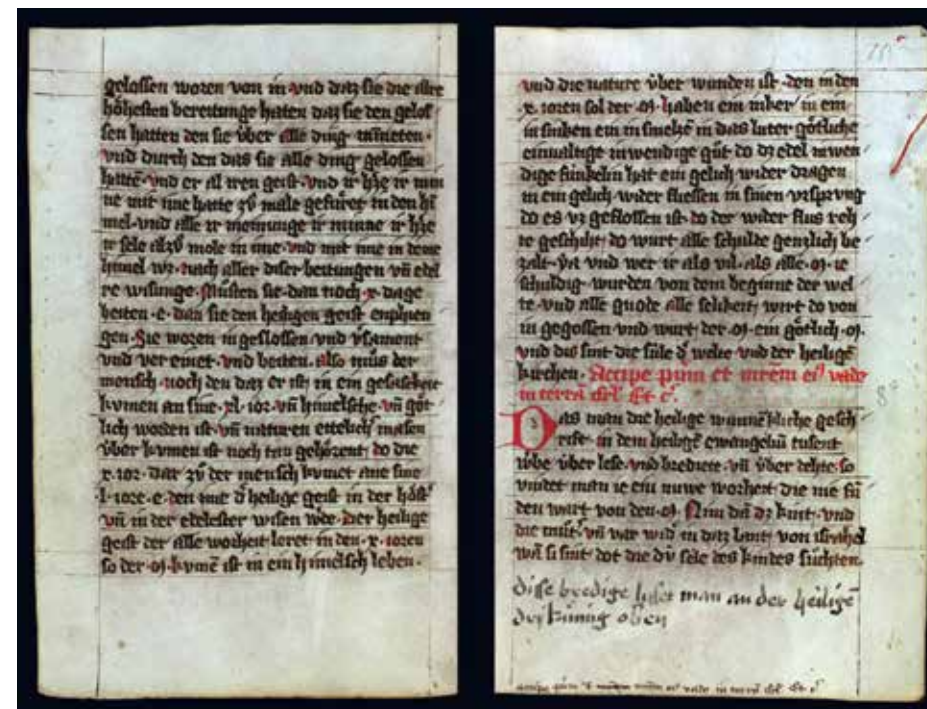 gelossen woren von in vnd daz sie die aller
höhesten bereitunge hatten daz sie den gelos
sen hatten den sie über alle ding minneten
vnd durch den das sie alle ding gelossen
hattē vnd er al iren geist vnd ir hʒe ir min
ne mit ime hatte zů male gefüret in den hi
mel vnd alle ir meinunge ir minne ir hʒe
ir sele alzů mole in ime vnd mit ime in deme
himel wʒ nach aller diser beitungen vn̄ edel
re wisunge Můsten sie dan noch x dage
beiten e dan sie den heiligen geist enphien
gen Sie woren in geslossen vnd
vnd ver einet vnd beiten also můs der
mensch noch den daz er ist in ein
kvmen an sine xl ior vn̄ himelsche vn̄ göt
lich worden ist vn̄ naturen ettelich masen
über kvmen ist noch tan gehörent do die
x ior dar zů der mensch kvmet ane sine
l iore e den ime d̄ heilige geist in der höst
vn̄ in der edelester wisen w̄de der heilige
geist der alle worheit leret in den x ioren
so der kvmē ist in ein himelsch leben
vnd die nature über wunden ist den in den
x ioren sol der haben ein inker in ein
in sinken ein in smelzē in das luter götliche
einualtige inwendige gůt do dʒ edel inwen
dige fünkelin hat ein gelich wider dragen
in ein gelich wider fliessen in sinen vrsprvng
do es vʒ geflossen ist do der wider flus reh
te geschiht do wurt alle schulde genzlich be
zalt vnd wer ir als vil als alle ie
schuldig wurden von dem beginne der wel
te vnd alle gnode alle selikeit wirt do von
in gegossen vnd wurt der ein götlich
vnd dis sint die süle d̄ welte vnd der heiligē
kirchen Accipe pūm et mrēm eiꝰ vade
in terrā isrl Et cͭ
Das man die heilige wunnēkliche gesch
rift in dem heiligē ewangeliū tusent
über lese vnd brediete vn̄ über dehte so
vindet man ie ein nuwe worheit die nie fū
den wart von den Nim din dʒ kint vnd
die můt vn̄ var wid̄ in daz lant von israhel
wā si sint dot die dů sele des kindes süchten
disse bredige liset man an der heiligē
dri künnig oben
accipe